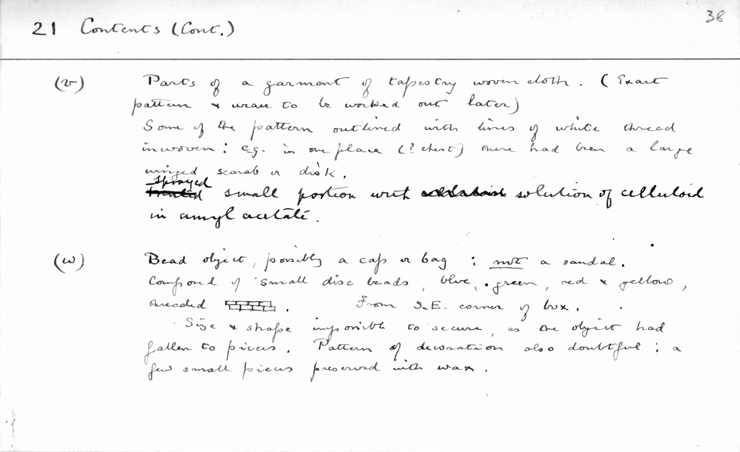 38
21 Contents (Cont.)
(v) Parts of a garment of tapestry woven cloth. (Exact
pattern & weave to be worked out later)
Some of the pattern outlined with lines of white thread
inwoven: e.g. in one place (? chest) there had been a large
winged scarab or disk.
Sprayed
small portion with solution of celluloid
in amyl acetate.
(w) Bead object, possibly a cap or bag: not a sandal.
Composed of small disc beads, blue, green, red & yellow,
threaded . From S.E. corner of box.
Size & shape impossible to secure, as the object had
fallen to pieces. Pattern of decoration also doubtful: a
few small pieces preserved with wax.